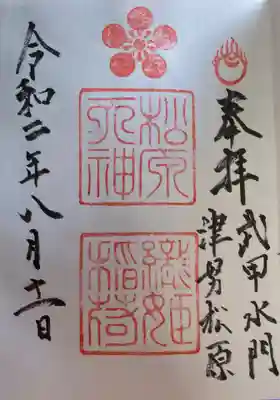 奉拝
武庫水門
津努松原
松原
天神
織姫
稲荷
令和二年八月十一日